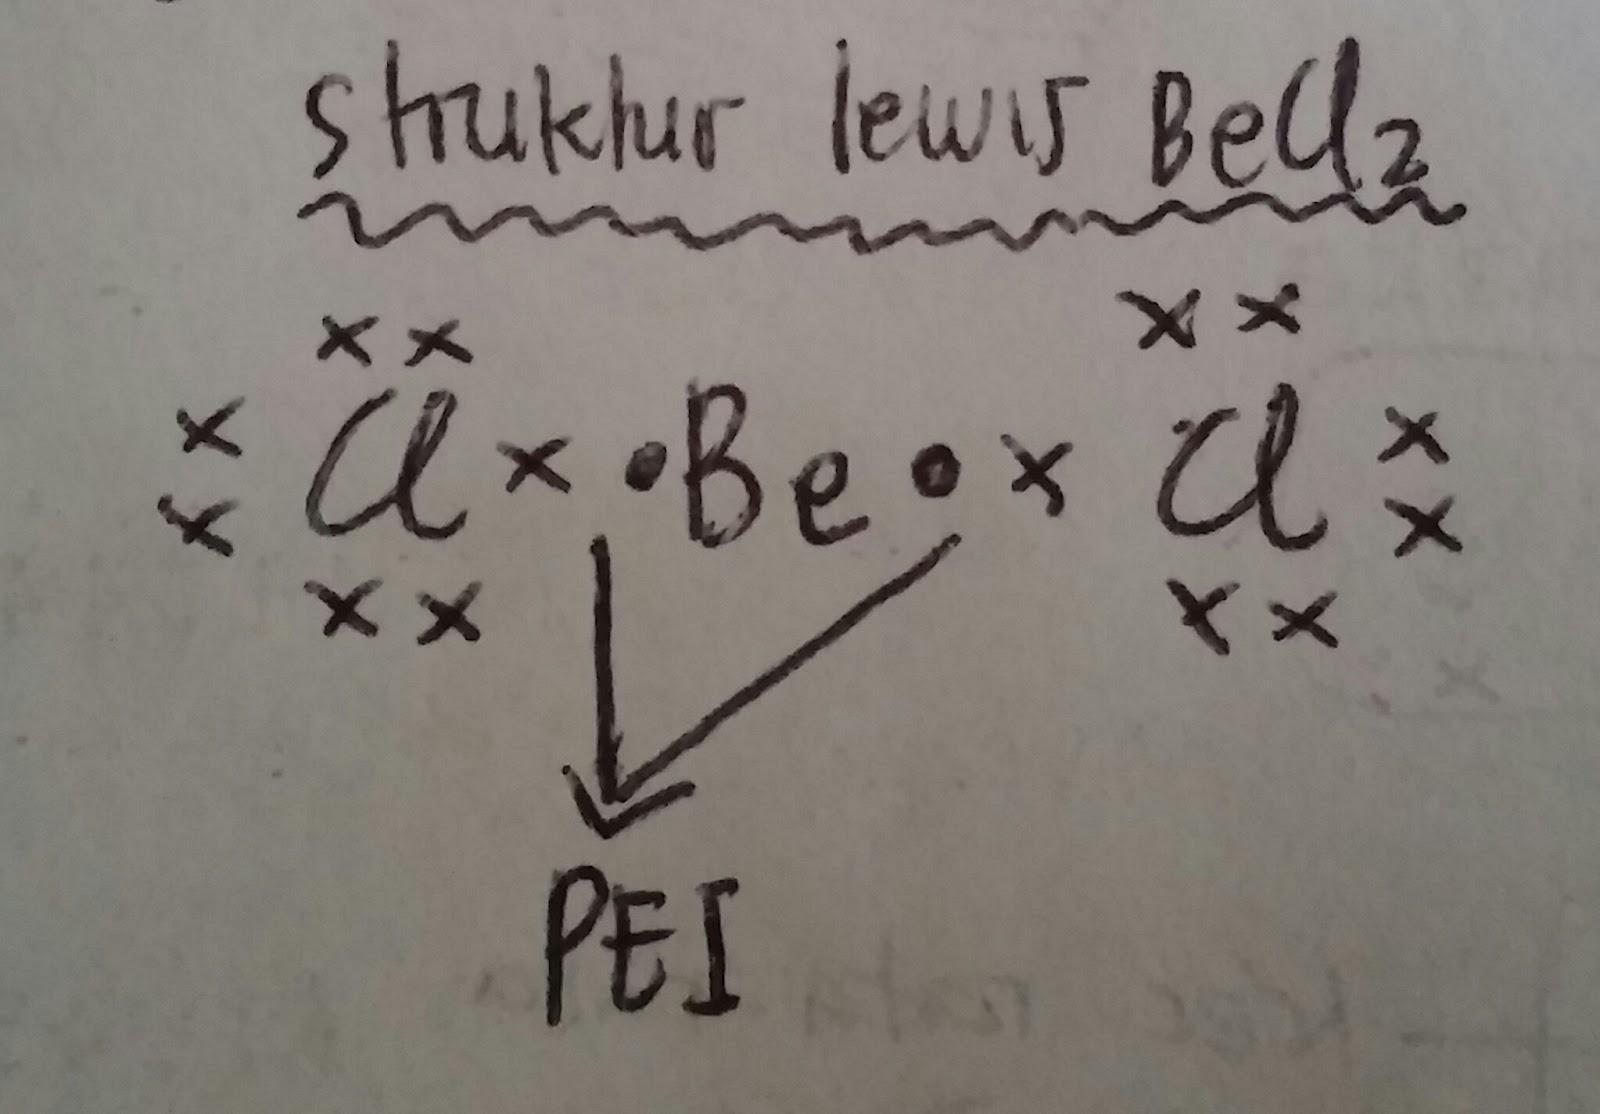 struktur lewis BeCl₂
x x x x
x Cl x • Be • x Cl x
x x
x x x x
PEI